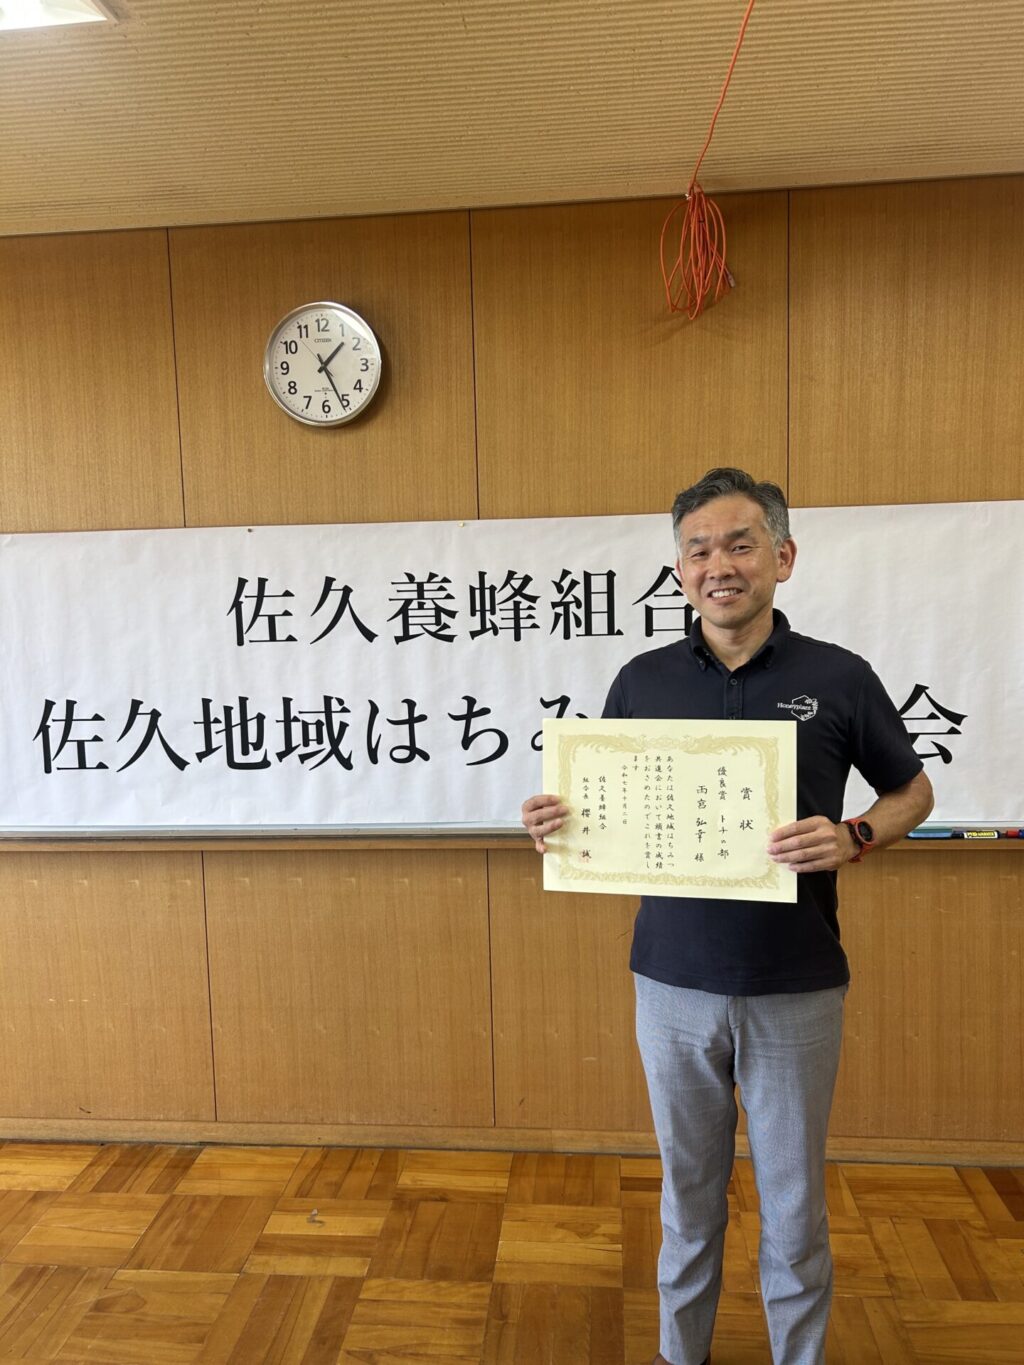 佐久養蜂組合
佐久地域はちみ
会
賞状
優良賞 トチの部
雨宮弘幸 様
あなたは佐久地域はちみつ
共進会において頭書の成績
をおさめたのでこれを賞し
ます
令和七年十月二日
佐久養蜂組合
組合長 櫻井 誠
Honeyplant
CITIZEN
12
1
2
3
4
5
6
7
8
9
10
11